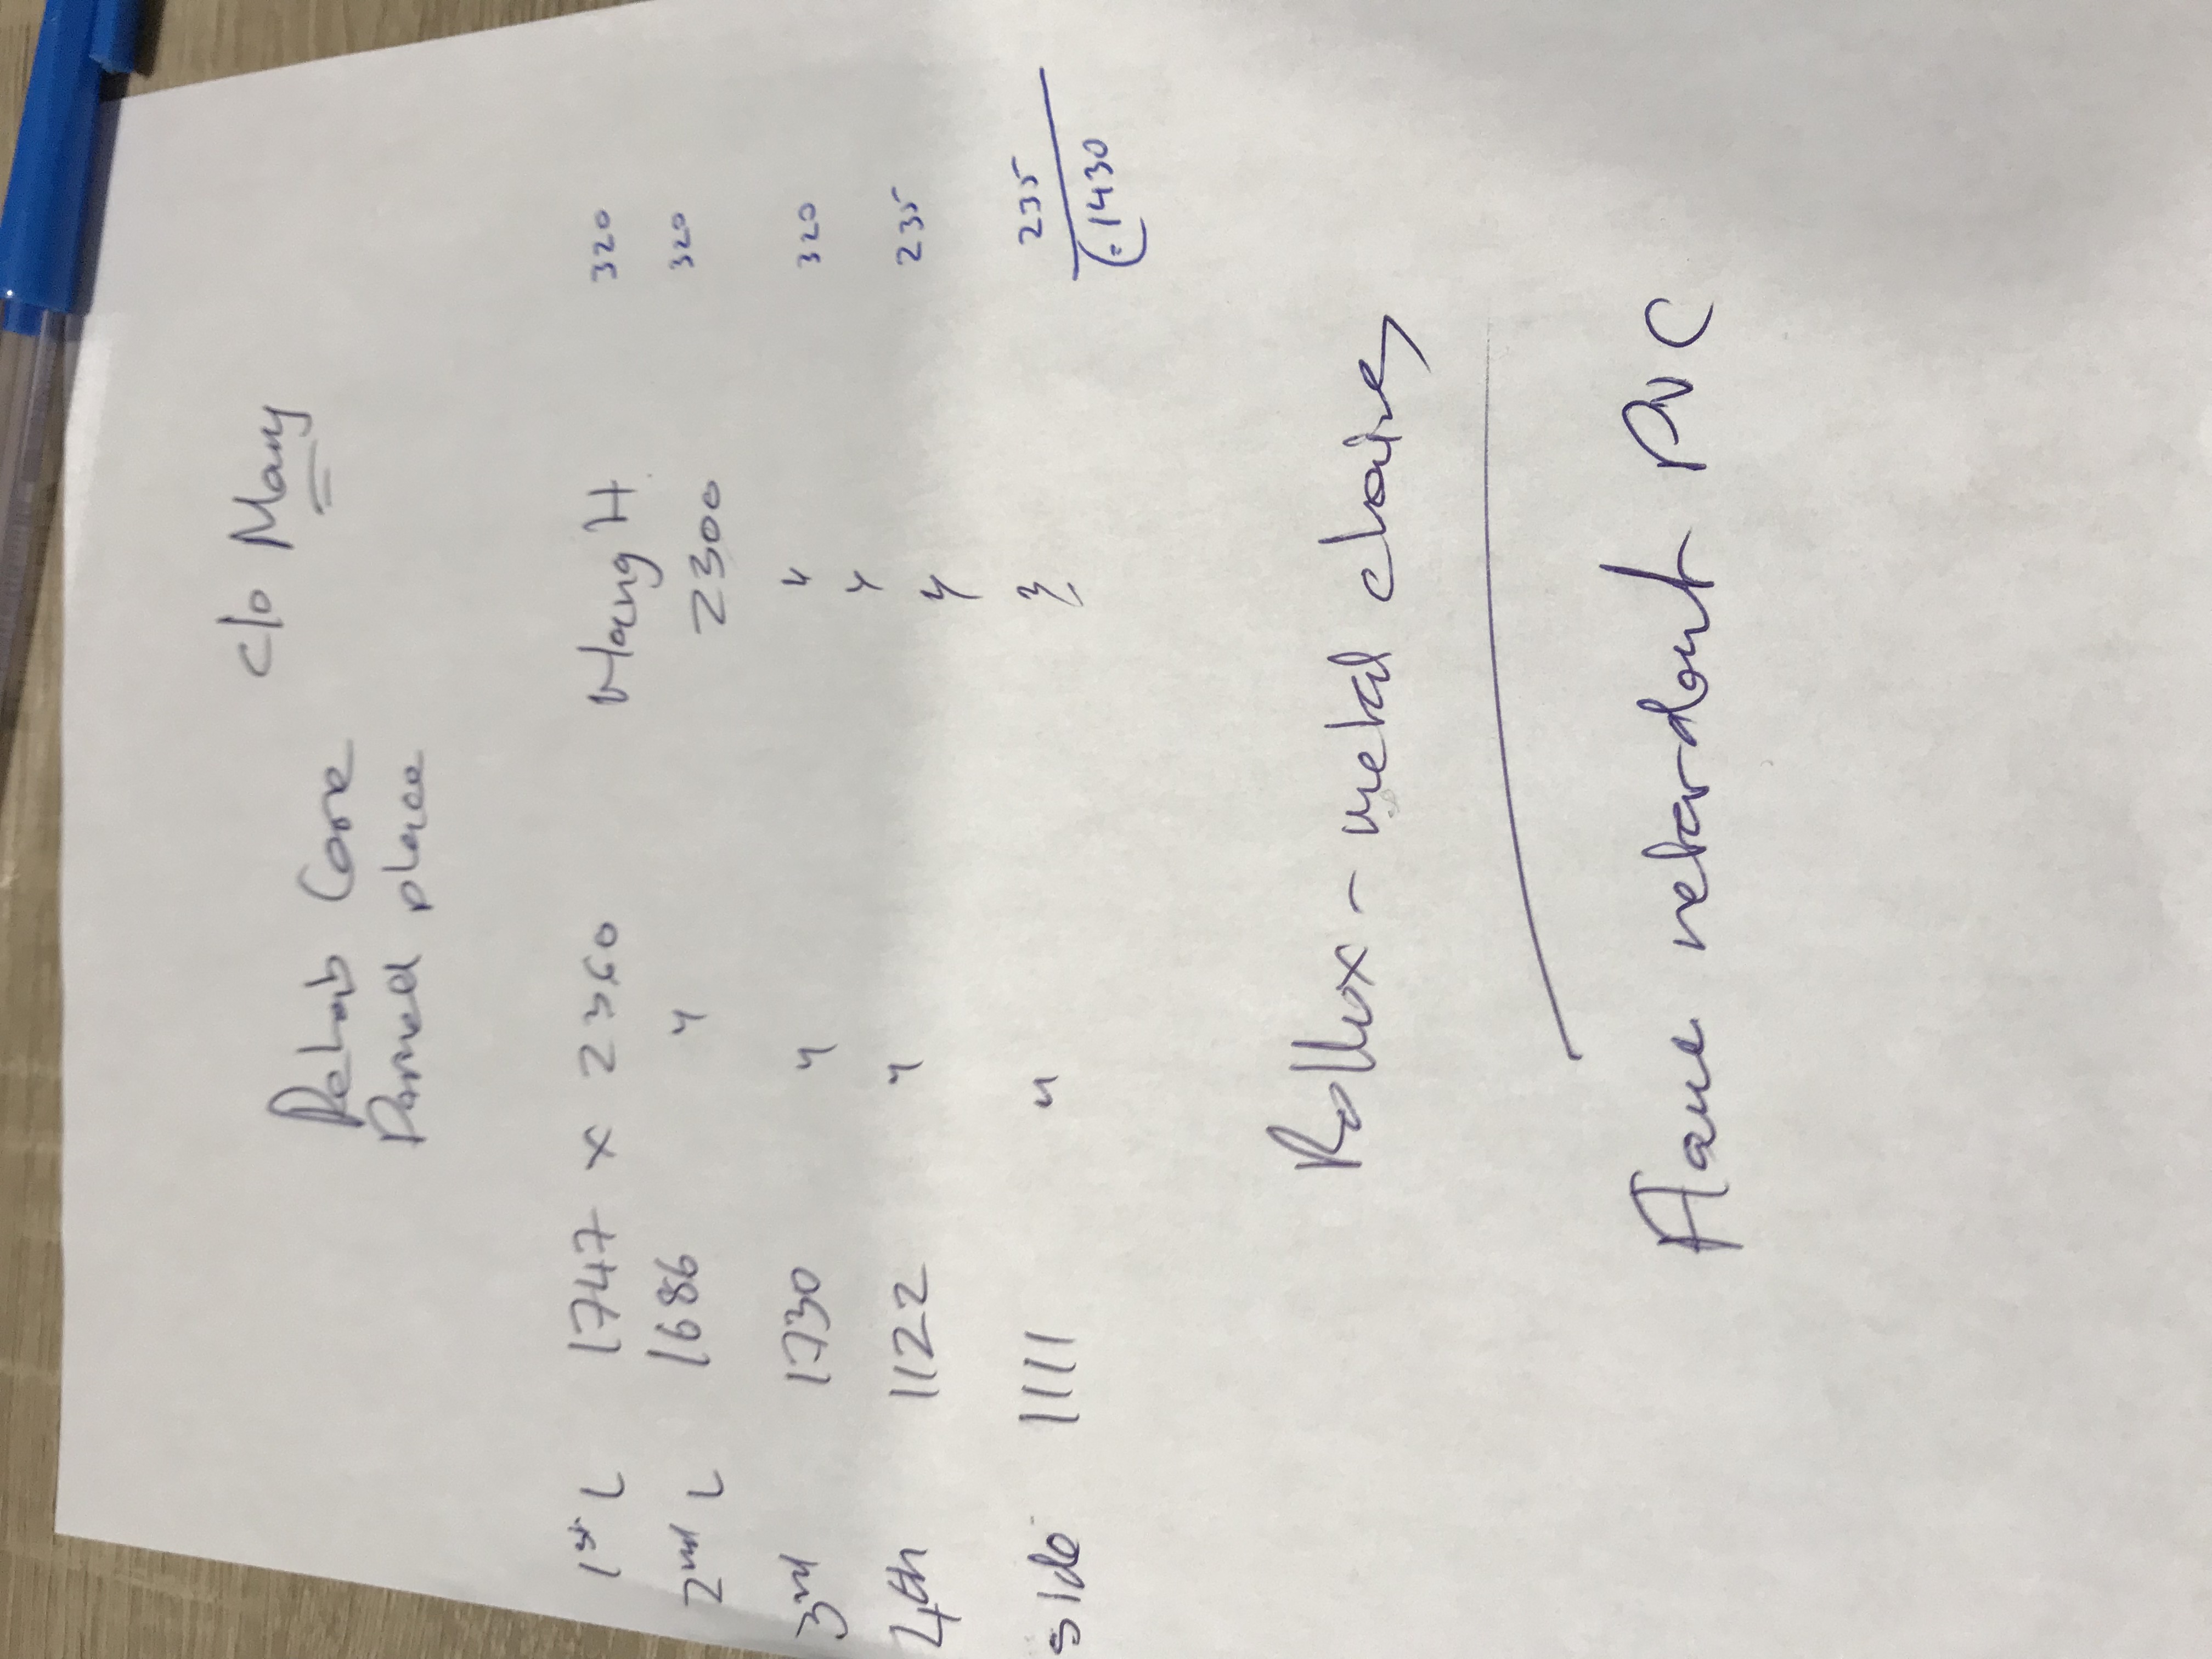 Rehab Care c/o Mary
Parnell place
1st L 1747 x 2360 Hang H 320
2nd L 1686 " 2300 320
3rd 1730 " " 320
"
4th 1122 " " 235
side 1111 " " 235
1430
Rollux - metal chains
retardant PVC